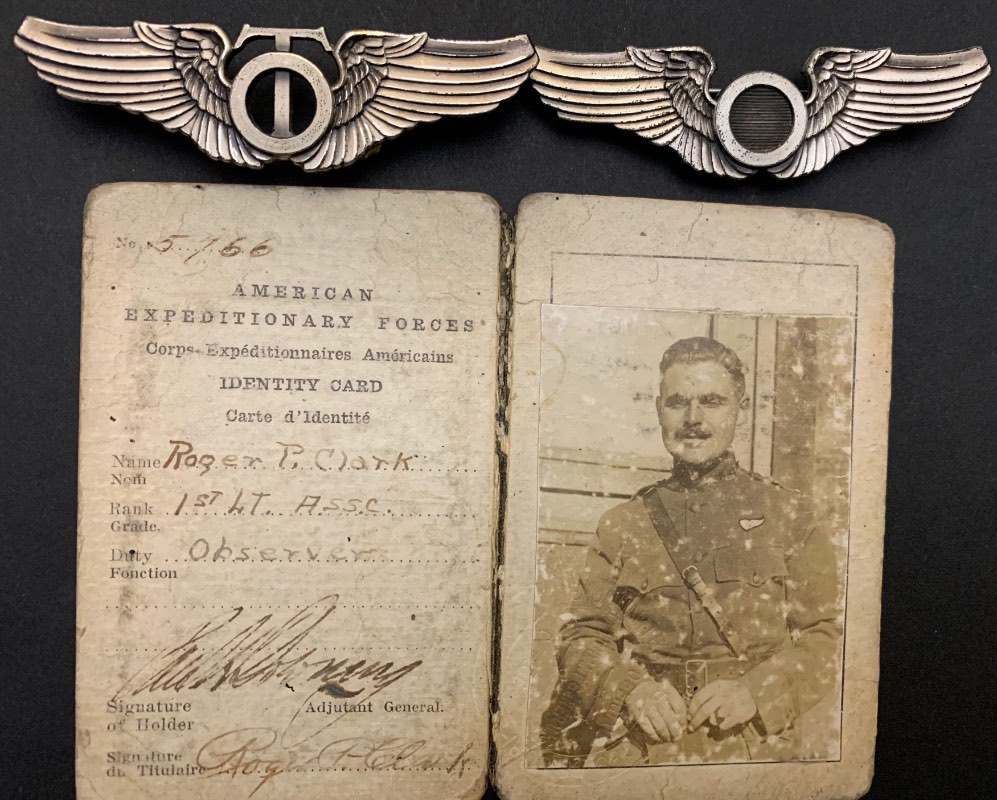 T
No. 5166
AMERICAN
EXPEDITIONARY FORCES
Corps Expéditionnaires Américains
IDENTITY CARD
Carte d'Identité
Name Roger P. Clark
Nom
Rank 1ST LT. A.S.S.C.
Grade.
Duty Observer
Fonction
Signature Adjutant General.
of Holder
Signature
du Titulaire Roger P. Clark